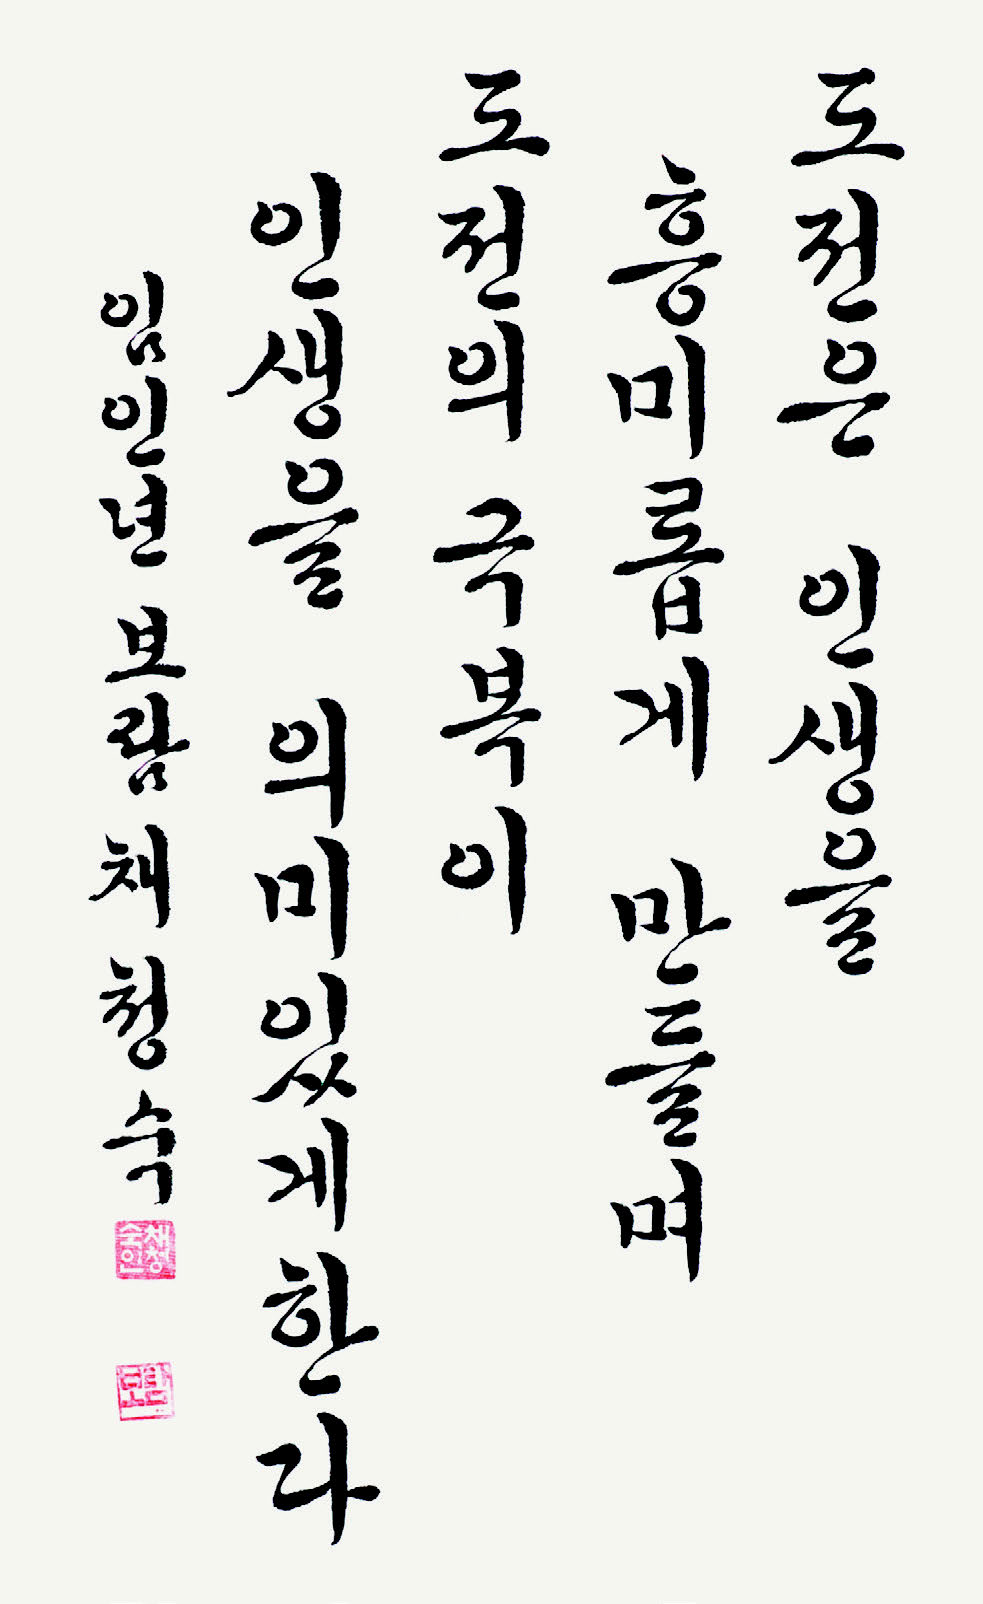 도전은 인생을
흥미롭게 만들며
도전의 극복이
인생을 의미있게한다
임인년 보람 채청숙
채청숙인
보람